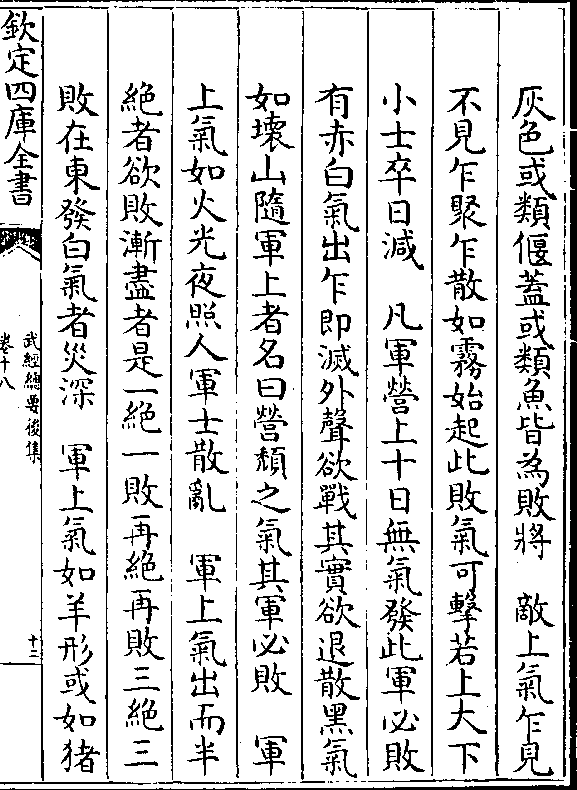 灰色或類偃蓋或類魚皆為敗將　敵上氣乍見
不見乍聚乍散如霧始起此敗氣可擊若上大下
小士卒日減　凡軍營上十日無氣發此軍必敗
有赤白氣出乍即滅外聲欲戰其實欲退散黑氣
如壞山隨軍上者名曰營頹之氣其軍必敗　軍
上氣如火光夜照人軍士散亂　軍上氣出而半
絕者欲敗漸盡者是一絕一敗再絕再敗三絕三
敗在東發白氣者災深　軍上氣如羊形或如猪
欽定四庫全書
武經總要後集
卷十八
十二